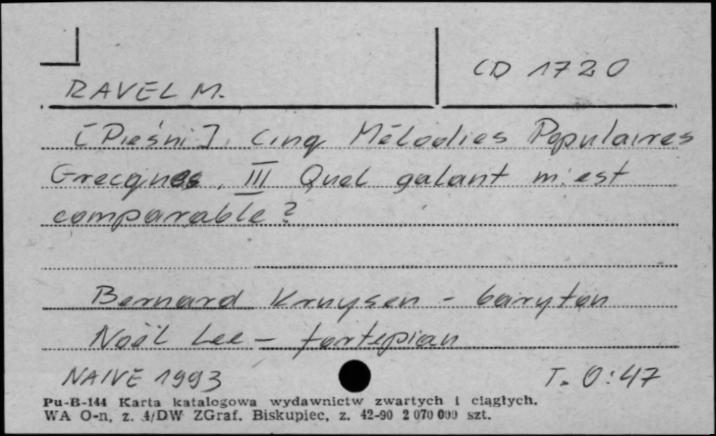 RAVEL M.
CD 1720
[Pieśni]. Cinq Mélodies Populaires
Grecques, III Quel galant m'est
comparable?
Bernard Kruysen - baryton
Noël Lee - fortepian
NAIVE 1993
T. 0:47
Pu-B-144 Karta katalogowa wydawnictw zwartych i ciągłych.
WA O-n, z. 4/DW ZGraf. Biskupiec, z. 42-90 2 070 000 szt.